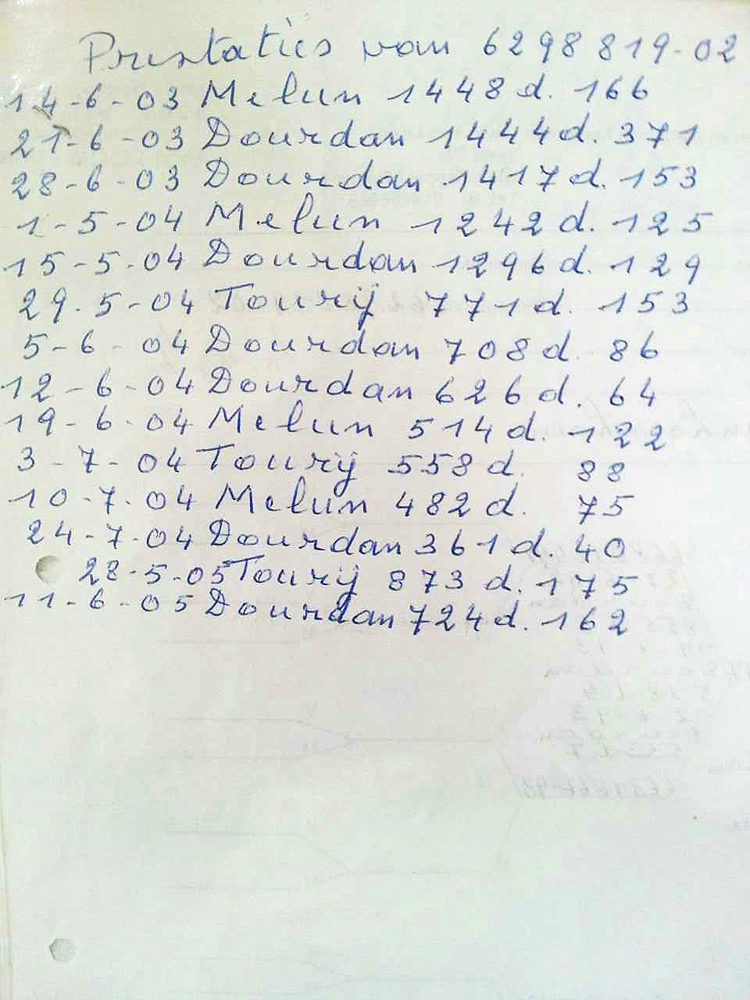 Prestaties van 6298819-02
14-6-03 Melun 1448 d. 166
21-6-03 Dourdan 1444 d. 371
28-6-03 Dourdan 1417 d. 153
1-5-04 Melun 1242 d. 125
15-5-04 Dourdan 1296 d. 129
29.5-04 Toury 771 d. 153
5-6-04 Dourdan 708 d. 86
12-6-04 Dourdan 626 d. 64
19-6-04 Melun 514 d. 122
3-7-04 Toury 558 d. 88
10-7-04 Melun 482 d. 75
24-7-04 Dourdan 361 d. 40
28-5-05 Toury 873 d. 175
11-6-05 Dourdan 724 d. 162